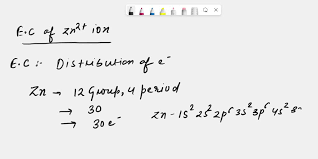 E.C of Zn²⁺ ion
E.C :- Distribution of e⁻
Zn → 12 Group, 4 period
→ 30
→ 30 e⁻
Zn - 1s² 2s² 2p⁶ 3s² 3p⁶ 4s² 3